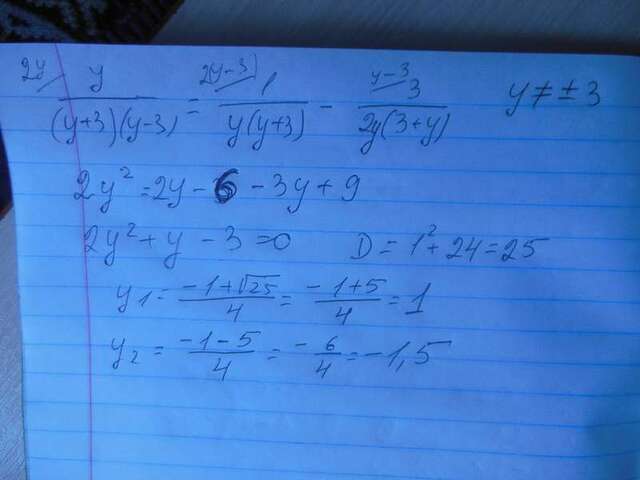 2y/ y/((y+3)(y-3)) = 2(y-3)/ 1/(y(y+3)) - y-3/ 3/(2y(3+y)) y ≠ ± 3
2y² = 2y - 6 - 3y + 9
2y² + y - 3 = 0 D = 1² + 24 = 25
y₁ = (-1+√25)/4 = (-1+5)/4 = 1
y₂ = (-1-5)/4 = -6/4 = -1,5